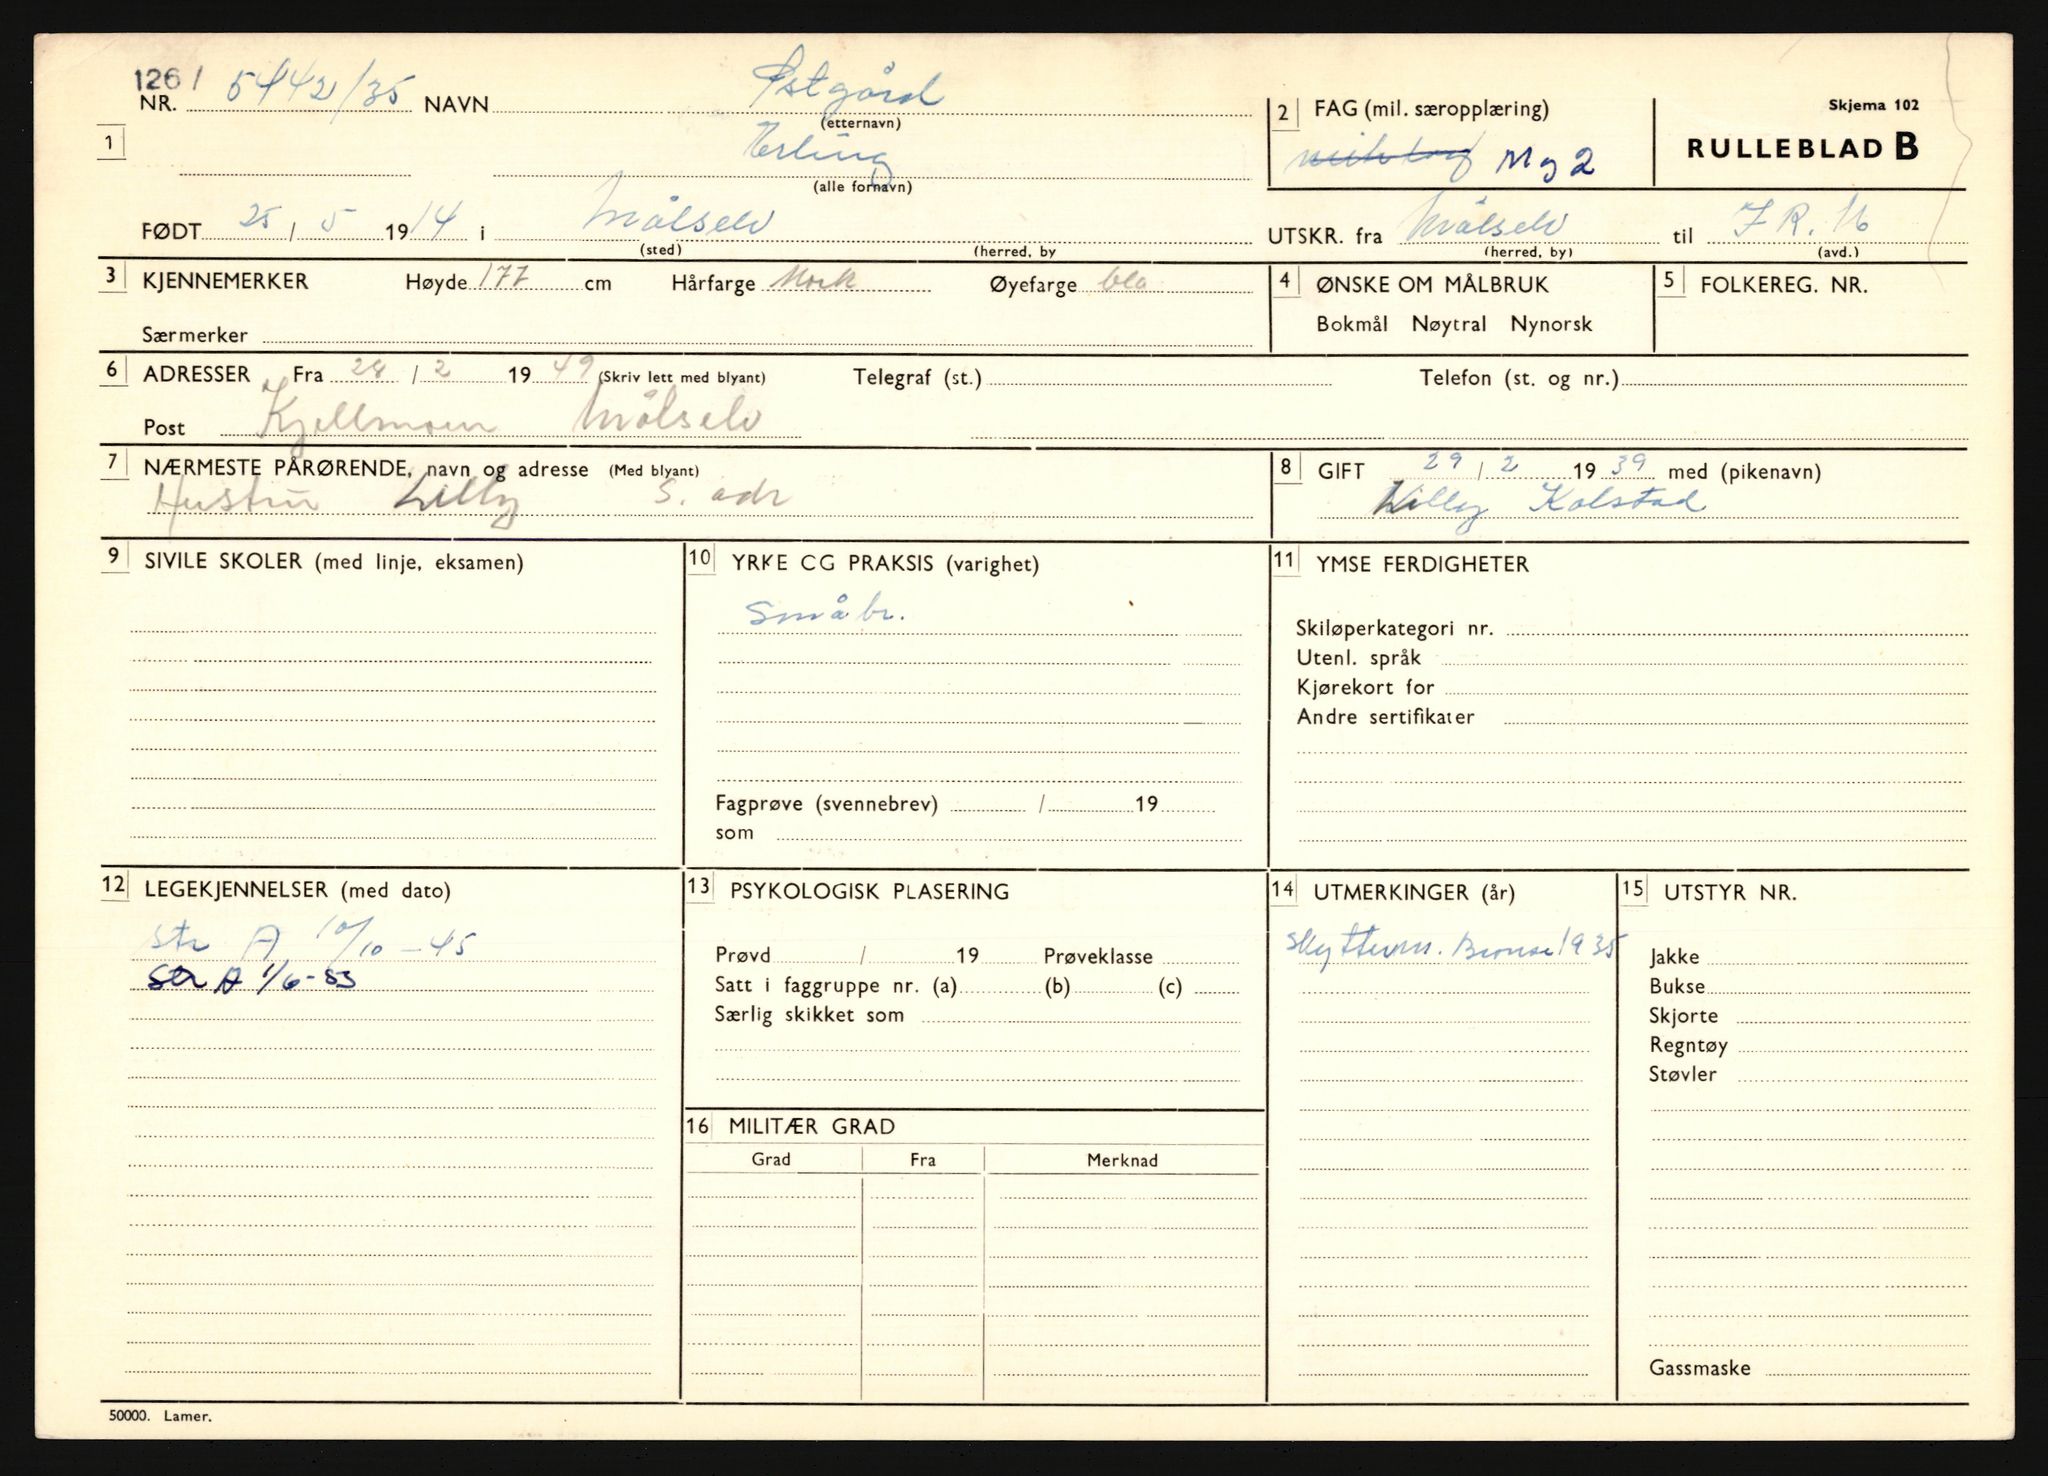 1261 5442/35
NR. NAVN Østgård
(etternavn)
1 Erling
(alle fornavn)
2 FAG (mil. særopplæring)
Mg 2
Skjema 102
RULLEBLAD B
FØDT 25 / 5 1914 i Målselv
(sted) (herred, by
UTSKR. fra Målselv til I R. 16
(herred, by) (avd.)
3 KJENNEMERKER Høyde 177 cm Hårfarge Mørk Øyefarge blå
Særmerker
4 ØNSKE OM MÅLBRUK
Bokmål Nøytral Nynorsk
5 FOLKEREG. NR.
6 ADRESSER Fra 28 / 2 1949 (Skriv lett med blyant) Telegraf (st.) Telefon (st. og nr.)
Post Kjellmoen Målselv
7 NÆRMESTE PÅRØRENDE, navn og adresse (Med blyant)
Hustru Lilly s. adr
8 GIFT 29 / 2 1939 med (pikenavn)
Lilly Kolstad
9 SIVILE SKOLER (med linje, eksamen)
10 YRKE CG PRAKSIS (varighet)
Småbr.
Fagprøve (svennebrev) / 19
som
11 YMSE FERDIGHETER
Skiløperkategori nr.
Utenl. språk
Kjørekort for
Andre sertifikater
12 LEGEKJENNELSER (med dato)
Str A 10/10 - 45
Str A 1/6 - 53
13 PSYKOLOGISK PLASERING
Prøvd / 19 Prøveklasse
Satt i faggruppe nr. (a) (b) (c)
Særlig skikket som
14 UTMERKINGER (år)
Skytterm. Bronse 1935
15 UTSTYR NR.
Jakke
Bukse
Skjorte
Regntøy
Støvler
Gassmaske
16 MILITÆR GRAD
Grad Fra Merknad
50000. Lamer.